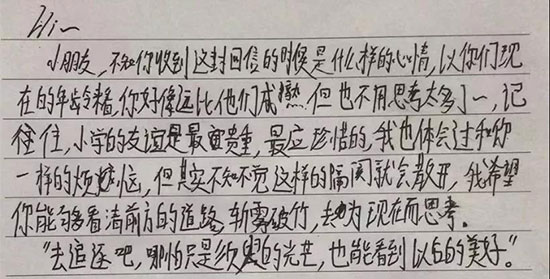 Hi~
小朋友，不知你收到这封回信的时候是什么样的心情，以你们现
在的年龄来看，你好像远比他们成熟，但也不用思考太多了~，记
住，小学的友谊是最宝贵重，最应珍惜的，我也体会过和你
一样的烦恼，但其实不知不觉这样的隔阂就会散开，我希望
你能够看清前方的道路，斩雾破竹，去为现在而思考。
"去追逐吧，哪怕只是须臾的光芒，也能看到以后的美好。"